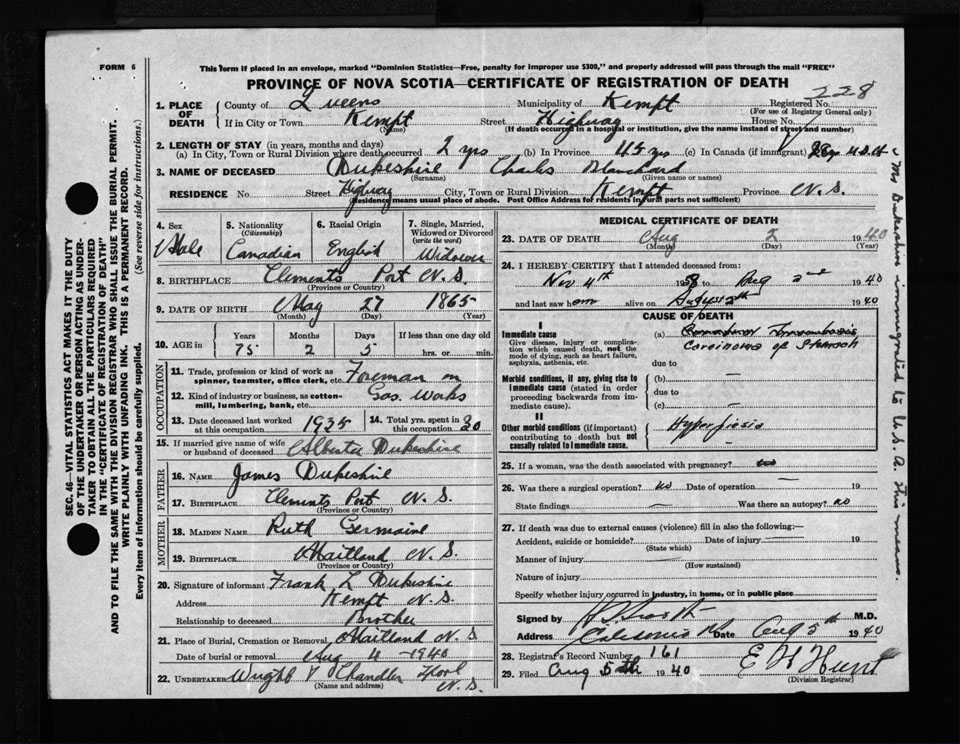 FORM 6
This form if placed in an envelope, marked "Dominion Statistics—Free, penalty for improper use $300," and properly addressed will pass through the mail "FREE"
PROVINCE OF NOVA SCOTIA—CERTIFICATE OF REGISTRATION OF DEATH
228
1. PLACE OF DEATH
County of Queens Municipality of Kempt Registered No.
(For use of Registrar General only)
If in City or Town Kempt Street Highway House No.
(Name) (If death occurred in a hospital or institution, give the name instead of street and number)
2. LENGTH OF STAY (in years, months and days)
(a) In City, Town or Rural Division where death occurred 2 yrs (b) In Province 45 yrs (c) In Canada (if immigrant)
3. NAME OF DECEASED Dukeshire Charles Blanchard
(Surname) (Given name or names)
RESIDENCE No. Street Highway City, Town or Rural Division Kempt Province N.S.
(Residence means usual place of abode. Post Office Address for residents in rural parts not sufficient)
4. Sex 5. Nationality 6. Racial Origin 7. Single, Married, Widowed or Divorced
(Citizenship) (write the word)
Male Canadian English Widower
8. BIRTHPLACE Clements Port N.S.
(Province or Country)
9. DATE OF BIRTH May 27 1865
(Month) (Day) (Year)
10. AGE in Years Months Days If less than one day old
75 2 5 hrs. or min.
OCCUPATION
11. Trade, profession or kind of work as spinner, teamster, office clerk, etc. Foreman in
12. Kind of industry or business, as cotton-mill, lumbering, bank, etc. Gas. Works
13. Date deceased last worked at this occupation 1935 14. Total yrs. spent in this occupation 20
15. If married give name of wife or husband of deceased Alberta Dukeshire
FATHER
16. NAME James Dukeshire
17. BIRTHPLACE Clements Port N.S.
(Province or Country)
MOTHER
18. MAIDEN NAME Ruth Germaine
19. BIRTHPLACE Maitland N.S.
(Province or Country)
20. Signature of informant Frank L Dukeshire
Address Kempt N.S.
Relationship to deceased Brother
21. Place of Burial, Cremation or Removal Maitland N.S
Date of burial or removal Aug 4 - 1940
22. UNDERTAKER Wright V Chandler
N.S.
(Name and address)
MEDICAL CERTIFICATE OF DEATH
23. DATE OF DEATH Aug 2 1940
(Month) (Day) (Year)
24. I HEREBY CERTIFY that I attended deceased from:
Nov 4th 1938 to Aug 2nd 1940
and last saw him alive on 1940
CAUSE OF DEATH
I
Immediate cause
Give disease, injury or complication which caused death, not the mode of dying, such as heart failure, asphyxia, asthenia, etc.
(a) Coronary Thrombosis
Carcinoma of Stomach
due to
Morbid conditions, if any, giving rise to immediate cause (stated in order proceeding backwards from immediate cause).
(b) —
due to
(c) —
II
Other morbid conditions (if important) contributing to death but not causally related to immediate cause.
25. If a woman, was the death associated with pregnancy? no
26. Was there a surgical operation? no Date of operation —
State findings — Was there an autopsy? no
27. If death was due to external causes (violence) fill in also the following:—
Accident, suicide or homicide? Date of injury 19
(State which)
Manner of injury
(How sustained)
Nature of injury
Specify whether injury occurred in industry, in home, or in public place
Signed by M.D.
Address Caledonia Date Aug 5th 1940
28. Registrar's Record Number 161
29. Filed Aug 5th 1940 E H Hunt
(Division Registrar)
SEC. 46—VITAL STATISTICS ACT MAKES IT THE DUTY
OF THE UNDERTAKER OR PERSON ACTING AS UNDER-
TAKER TO OBTAIN ALL THE PARTICULARS REQUIRED
IN THE "CERTIFICATE OF REGISTRATION OF DEATH"
AND TO FILE THE SAME WITH THE DIVISION REGISTRAR WHO SHALL ISSUE THE BURIAL PERMIT.
WRITE PLAINLY WITH UNFADING INK. THIS IS A PERMANENT RECORD.
Every item of information should be carefully supplied. (See reverse side for instructions.)
Mr Dukeshire immigrated to U.S.A. this means.